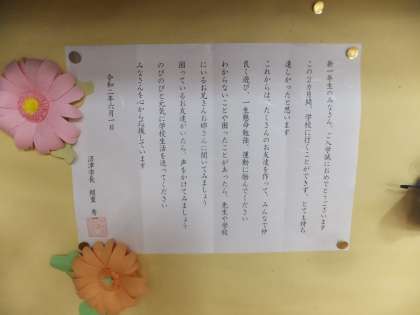 新一年生のみなさん、ご入学誠におめでとうございます
この２カ月間、学校に行くことができず、とても待ち
遠しかったと思います
これからは、たくさんのお友達を作って、みんなで仲
良く遊び、一生懸命勉強、運動に励んでください
わからないことや困ったことがあったら、先生や学校
にいるお兄さんお姉さんに聞いてみましょう
困っているお友達がいたら、声をかけてみましょう
のびのびと元気に学校生活を送ってください
みなさんを心から応援しています
令和二年六月一日
沼津市長 頼重 秀一